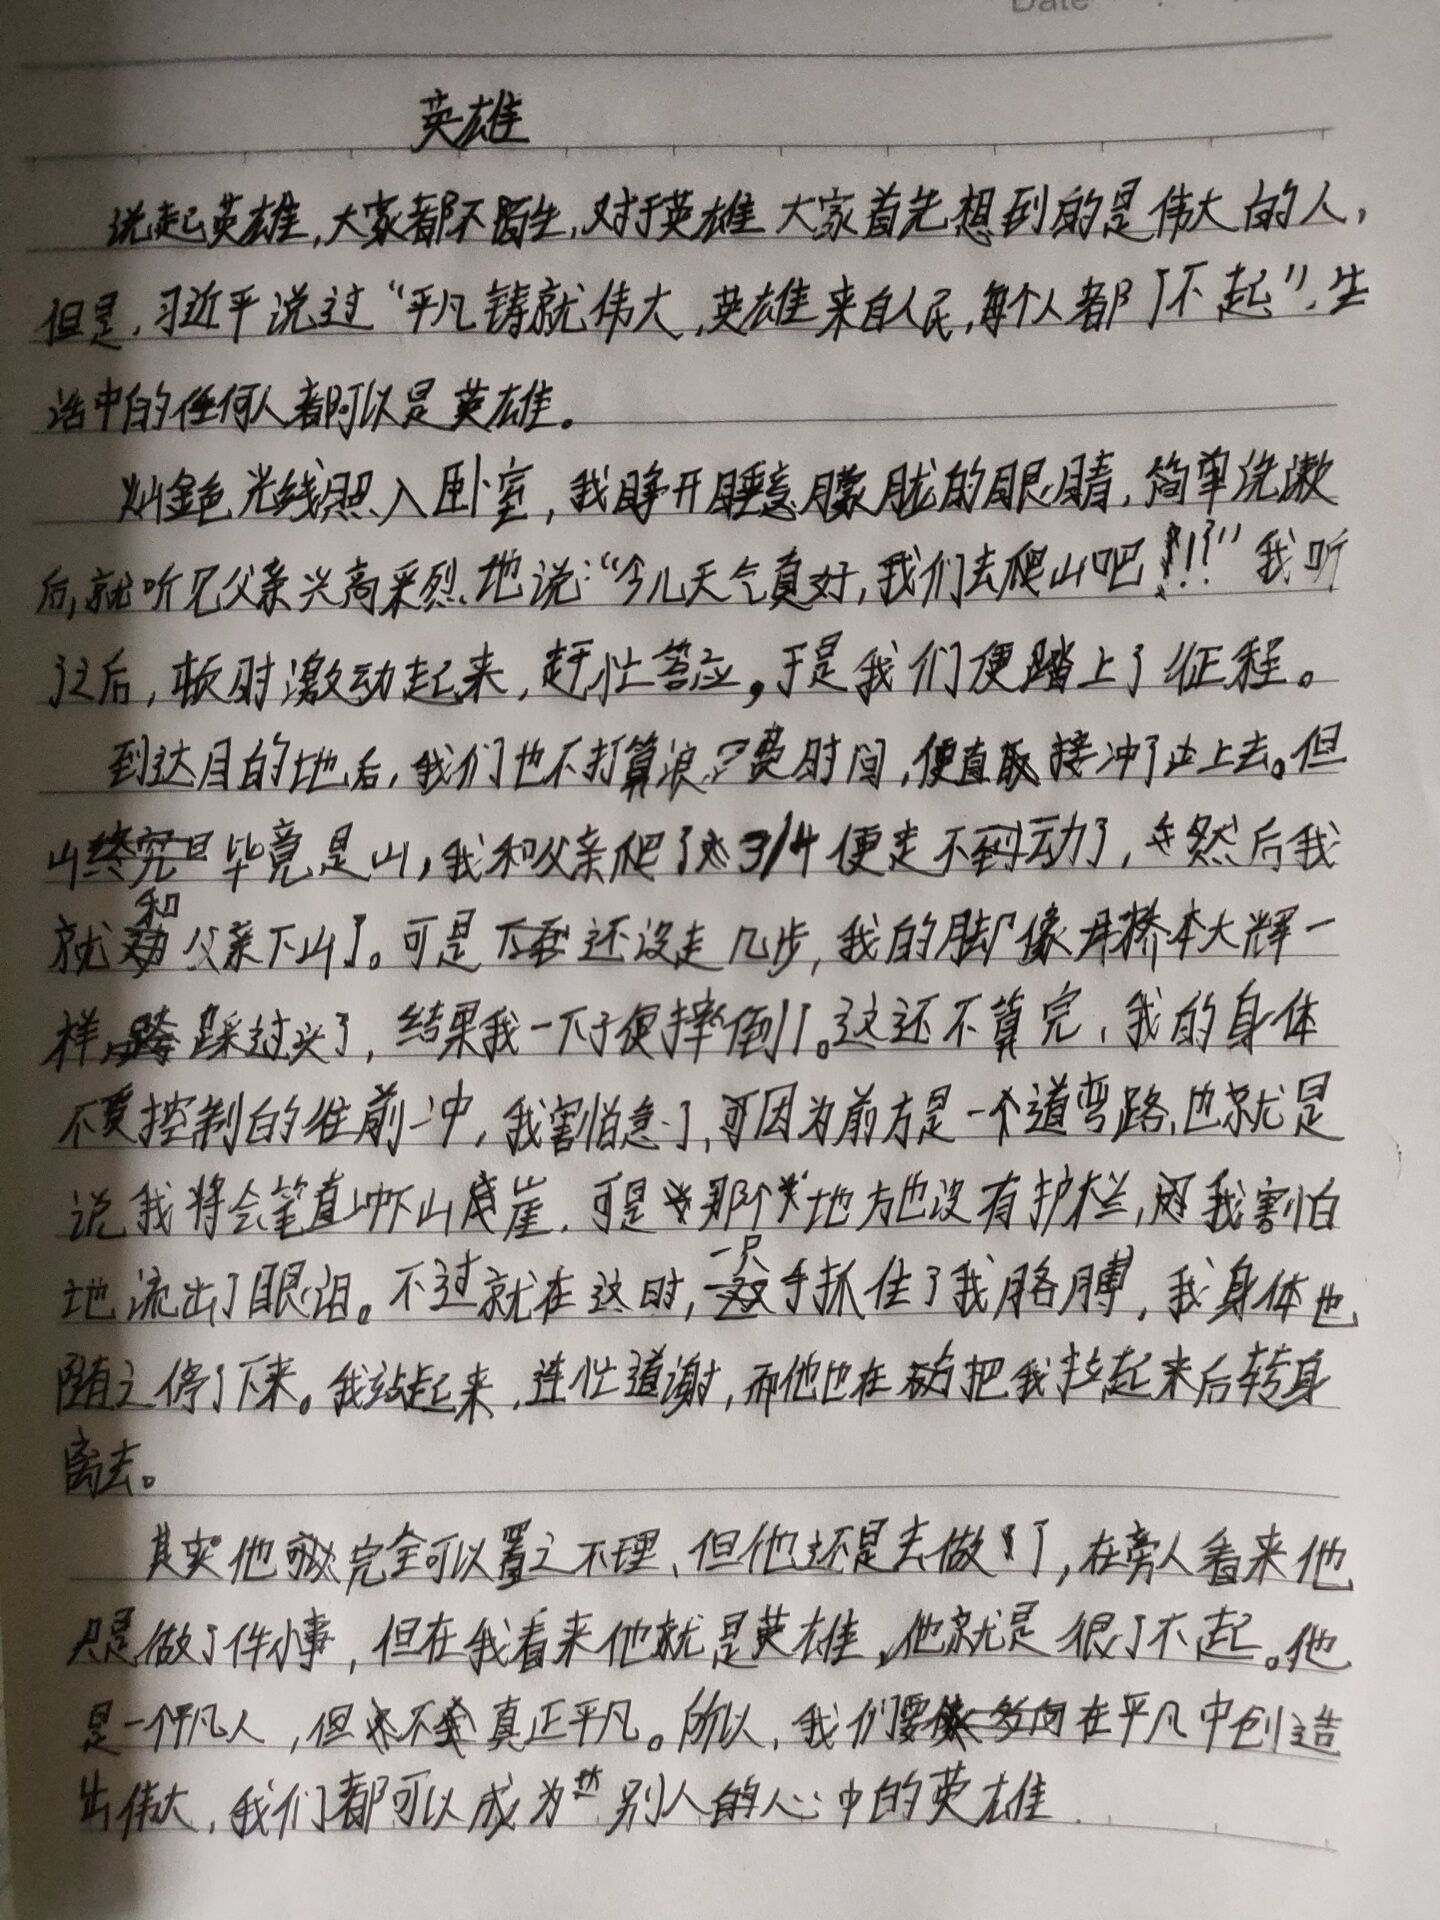 Date
英雄
说起英雄,大家都不陌生,对于英雄 大家首先想到的是伟大的人,
但是,习近平说过“平凡铸就伟大,英雄来自人民,每个人都了不起”,生
活中的任何人都可以是英雄。
灿金色光线照入卧室,我睁开睡意朦胧的眼睛,简单洗漱
后,就听见父亲兴高采烈地说:“今儿天气真好,我们去爬山吧!!!”我听
了之后,顿时激动起来,赶忙答应。于是我们便踏上了征程。
到达目的地后,我们也不打算浪费时间,便直接冲了上去。但
山毕竟是山,我和父亲爬了3/4便走不动了,然后我
就和父亲下山了。可是还没走几步,我的脚像乔本大辉一
样踩过头了,结果我一下子便摔倒了。这还不算完,我的身体
不受控制的往前冲,我害怕急了,因为前方是一个道弯路,也就是
说我将会笔直冲下山崖,可是那个地方也没有护栏,我害怕
地流出了眼泪。不过就在这时,一只手抓住了我胳膊,我身体也
随之停了下来。我站起来,连忙道谢,而他也在把我拉起来后转身
离去。
其实他完全可以置之不理,但他还是去做了,在旁人看来他
只是做了件小事,但在我看来他就是英雄,他就是很了不起。他
是一个平凡人,但不真正平凡。所以,我们要在平凡中创造
出伟大,我们都可以成为别人的心中的英雄